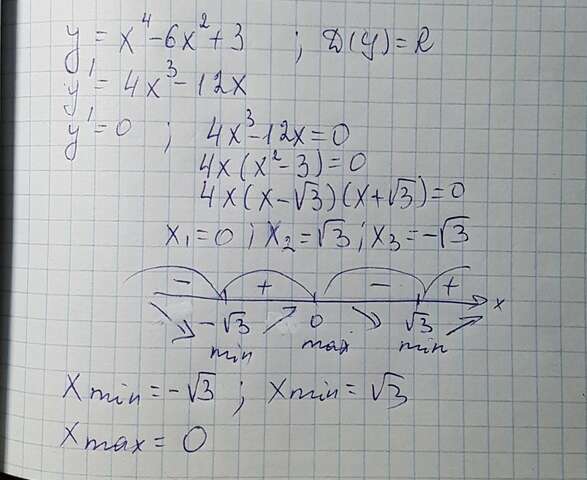 y = x⁴ - 6x² + 3 ; D(y) = R
y' = 4x³ - 12x
y' = 0 ; 4x³ - 12x = 0
4x(x² - 3) = 0
4x(x - √3)(x + √3) = 0
x₁ = 0 ; x₂ = √3 ; x₃ = -√3
- + - +
-√3 0 √3 x
min max min
Xmin = -√3 ; Xmin = √3
Xmax = 0